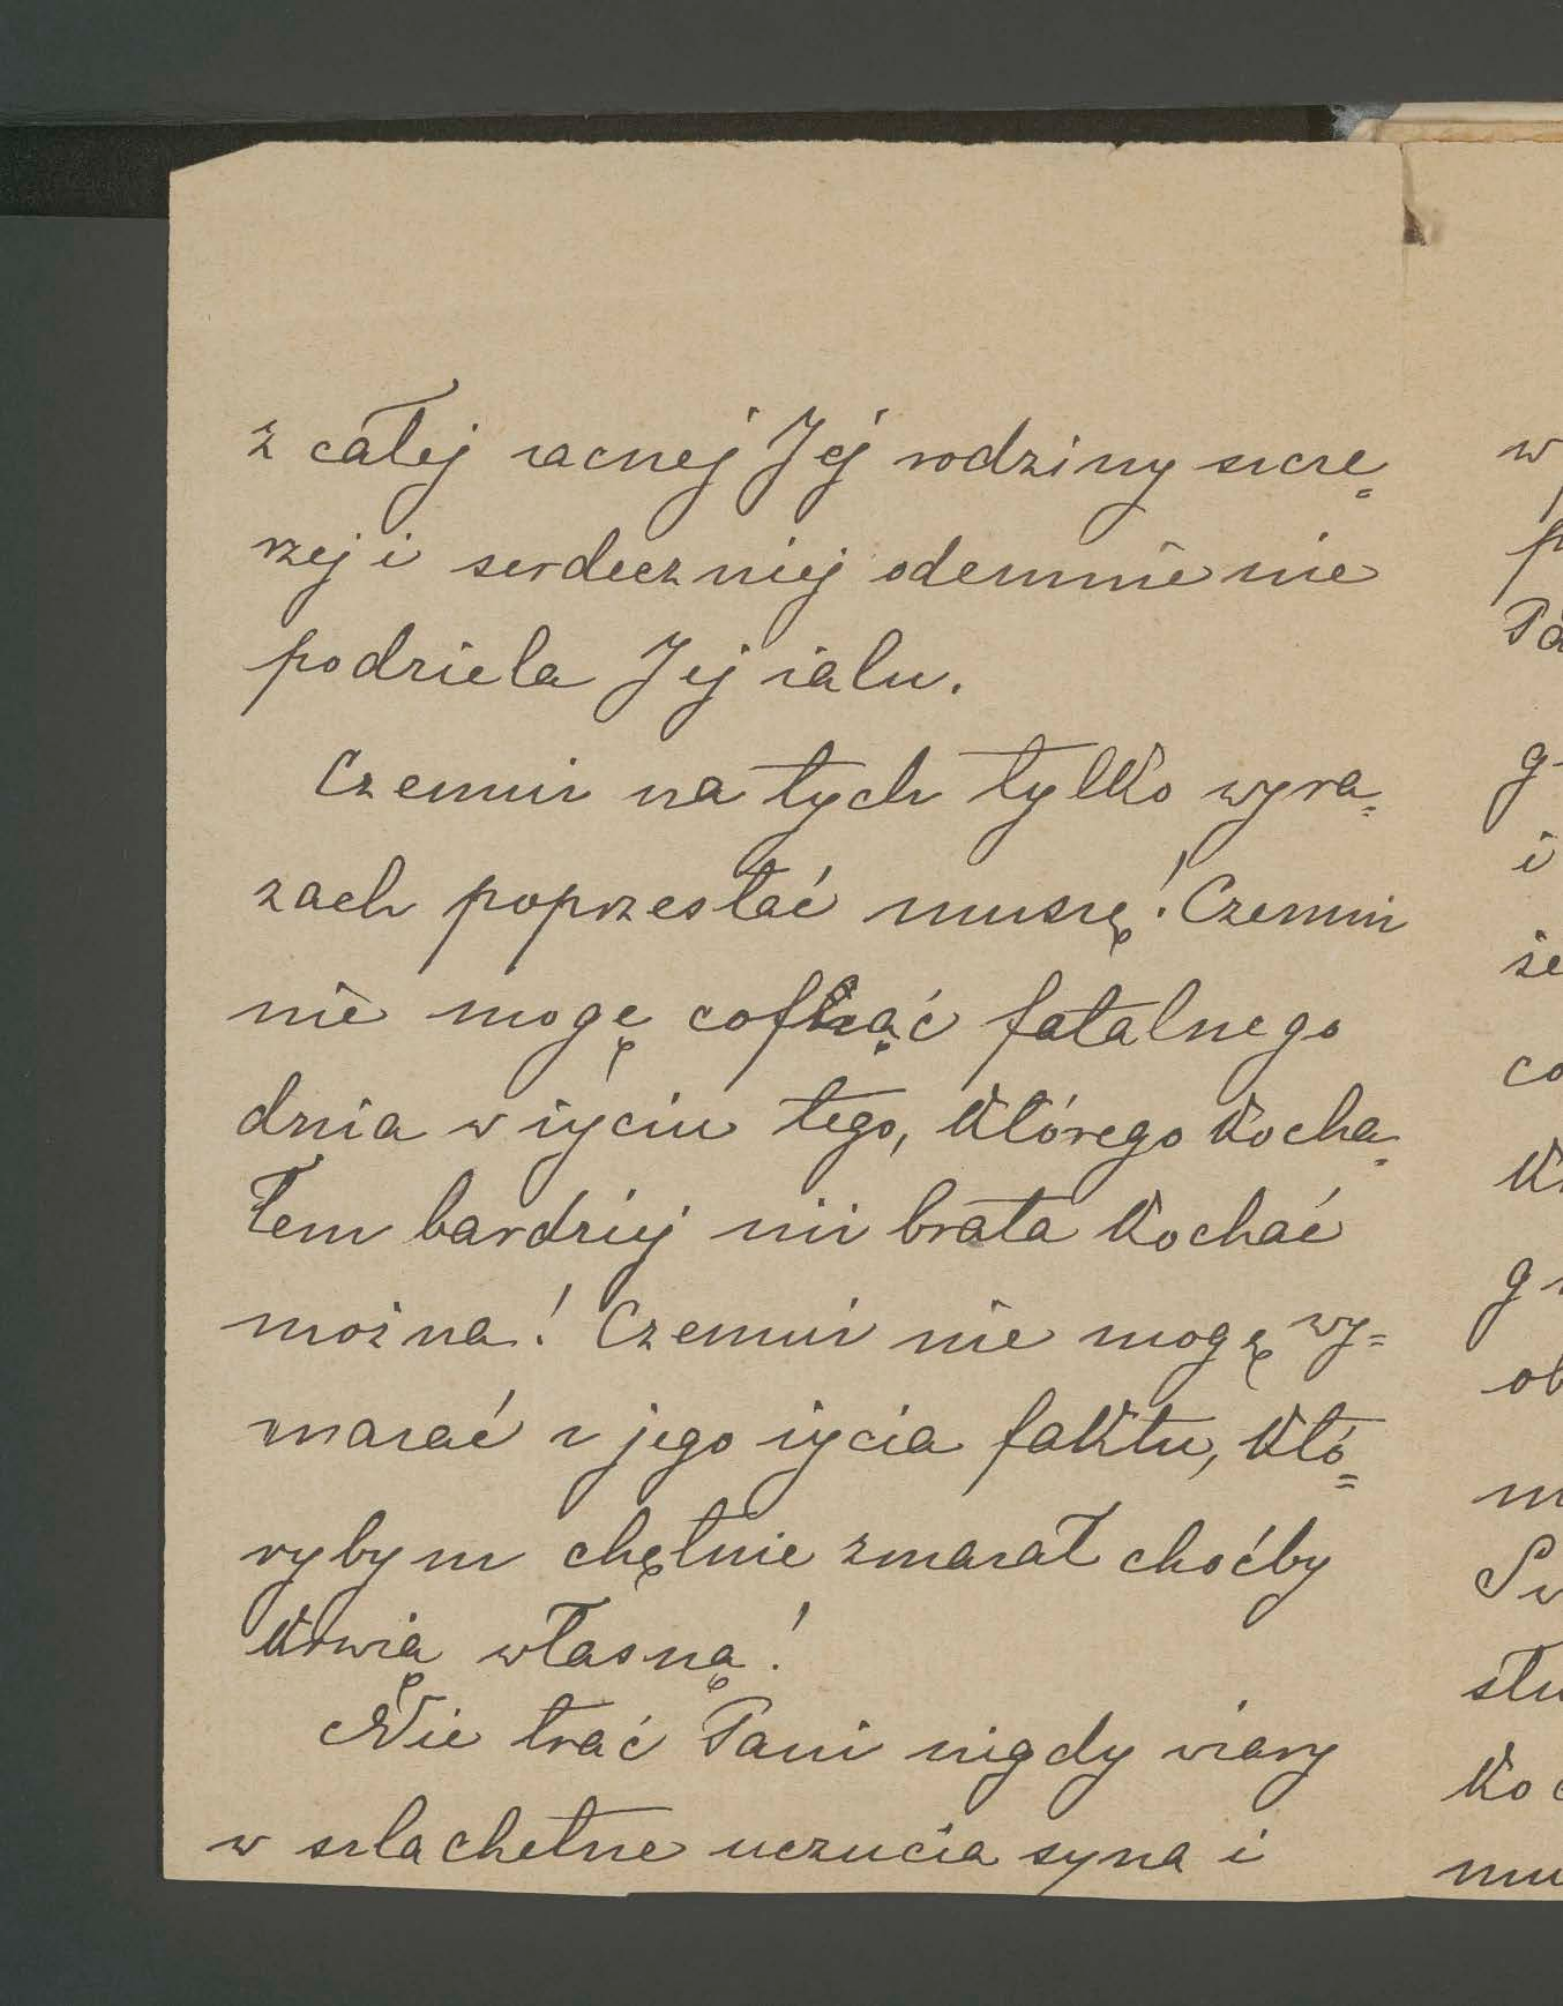 z całej zacnej Jej rodziny szcze=
rzej i serdeczniej odemnie nie
podziela Jej żalu.
Czemuż na tych tylko wyra=
zach poprzestać muszę! Czemuż
nie mogę cofnąć fatalnego
dnia w życiu tego, którego kocha=
łem bardziej niż brata kochać
można! Czemuż nie mogę wy=
mazać z jego życia faktu, któ=
rybym chętnie zmazał choćby
krwią własną!
Nie trać Pani nigdy wiary
w szlachetne uczucia syna i